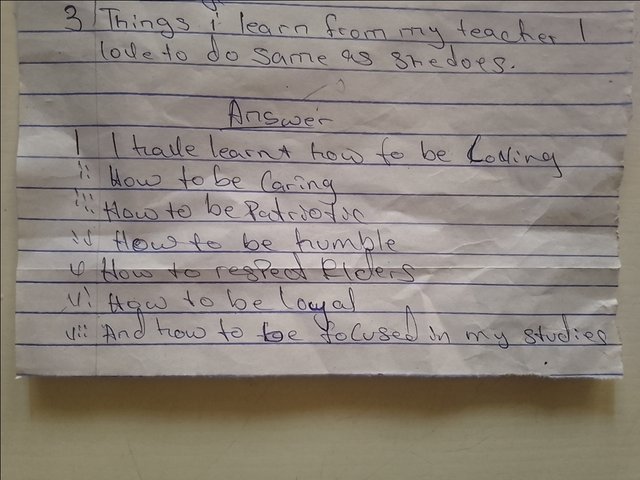 3 Things i learn from my teacher I
love to do same as she does.
Answer
I I have learnt how to be Loving
ii How to be Caring
iii How to be Patriotic
iv How to be humble
v How to respect Elders
vi How to be loyal
vii And how to be focused in my studies